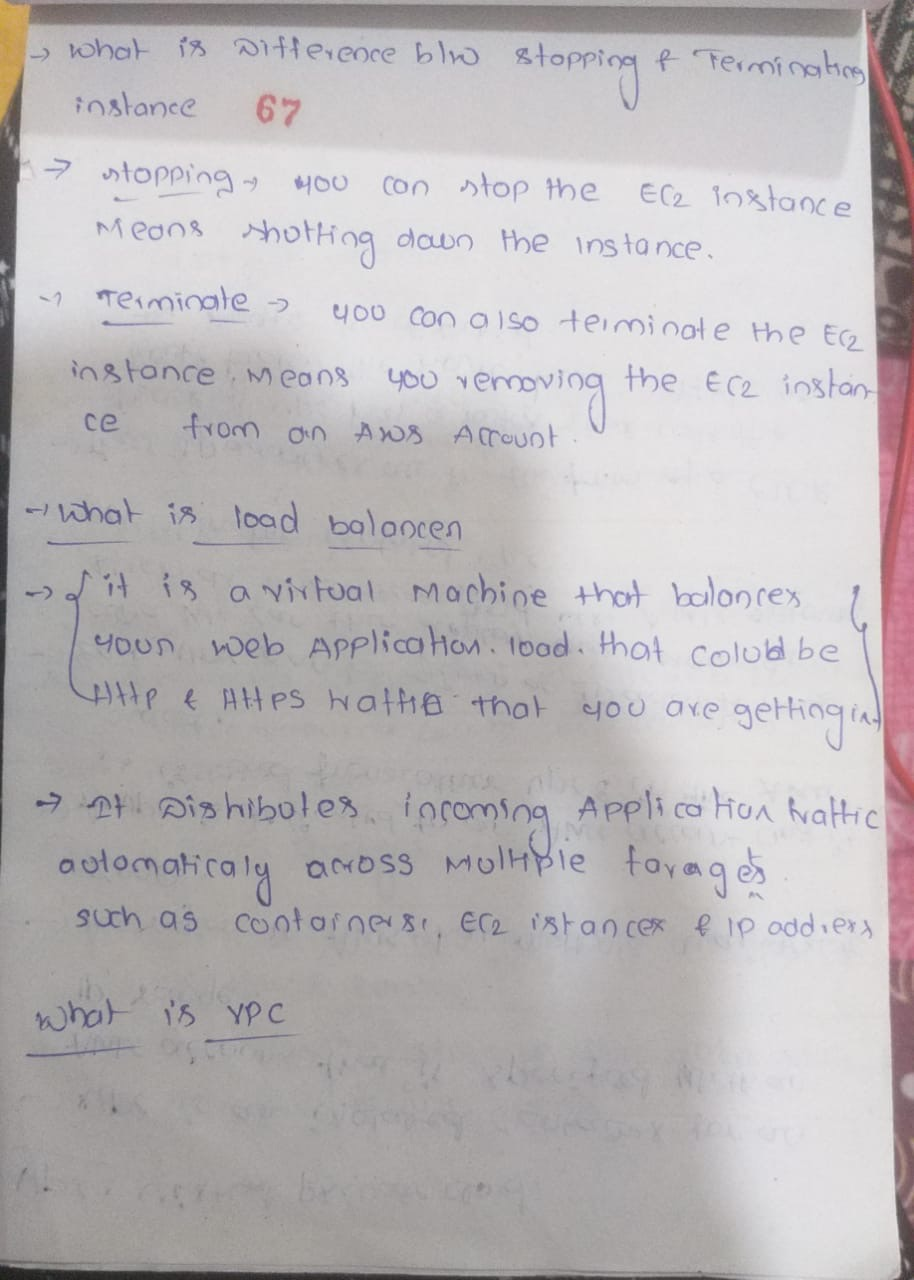 → What is Difference b/w stopping & Terminating
instance 67
→ stopping → you can stop the EC2 instance
Means shutting down the instance.
→ Terminate → you can also terminate the EC2
instance, Means you removing the EC2 instan
ce from an AWS Account.
→ What is load balancer
→ it is a virtual Machine that balances
your web Application. load. that could be
Http & Https traffic that you are getting in
→ It Distributes incoming Application traffic
automaticaly across Multiple tarages
such as containers, EC2 istances & IP address
What is VPC